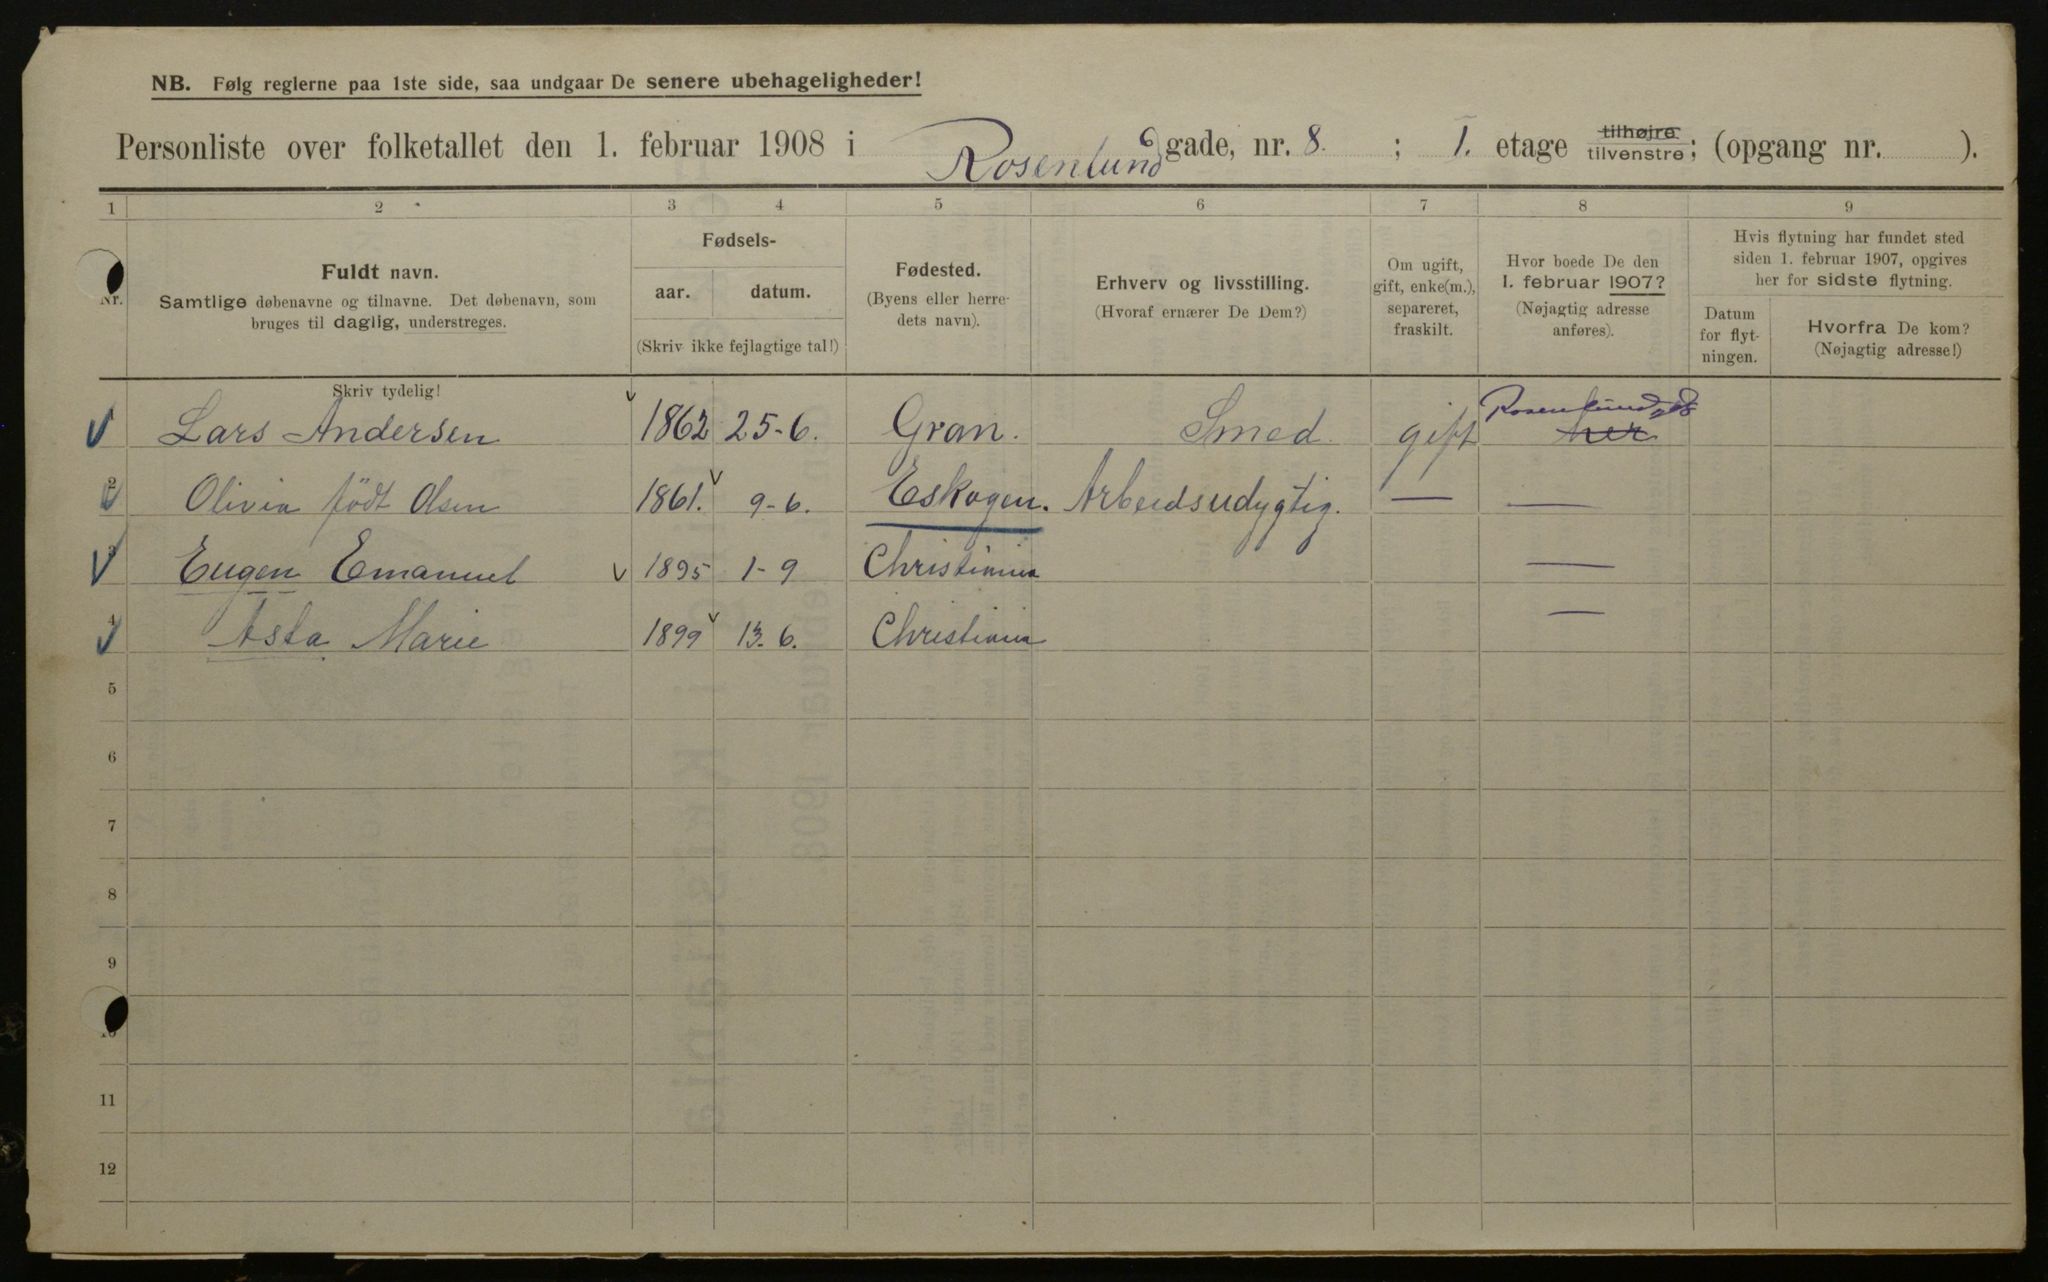 NB. Følg reglerne paa 1ste side, saa undgaar De senere ubehageligheder!
Personliste over folketallet den 1. februar 1908 i Rosenlund gade, nr. 8. ; 1. etage tilhøjre tilvenstre; (opgang nr. ).
1 2 3 4 5 6 7 8 9
Nr.
Fuldt navn.
Samtlige døbenavne og tilnavne. Det døbenavn, som
bruges til daglig, understreges.
Skriv tydelig!
Fødsels-
aar. datum.
(Skriv ikke fejlagtige tal!)
Fødested.
(Byens eller herre-
dets navn).
Erhverv og livsstilling.
(Hvoraf ernærer De Dem?)
Om ugift,
gift, enke(m.),
separeret,
fraskilt.
Hvor boede De den
1. februar 1907?
(Nøjagtig adresse
anføres).
Hvis flytning har fundet sted
siden 1. februar 1907, opgives
her for sidste flytning.
Datum
for flyt-
ningen.
Hvorfra De kom?
(Nøjagtig adresse!)
1 Lars Andersen 1862 25-6. Gran. Smed. gift Rosenlundgd 8 her
2 Olivia födt Olsen 1861. 9-6. Eskogen. Arbeidsudygtig. — —
3 Eugen Emanuel 1895 1-9 Christiania —
4 Asta Marie 1899 13-6. Christiania —
5
6
7
8
9
10
11
12